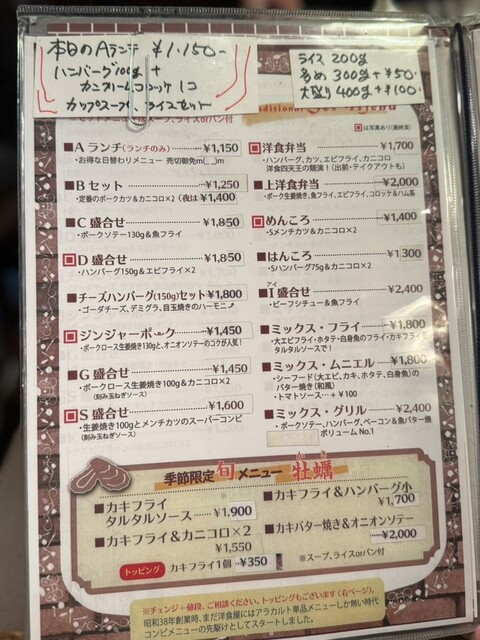 本日のAランチ ¥1,150-
ハンバーグ100g +
カニクリームコロッケ 1コ
カップスープ、ライスセット
ライス 200g
多め 300g +¥50
大盛り 400g +¥100
スープ、ライスorパン付
■は写真あり(最終頁)
■A ランチ(ランチのみ)……¥1,150
・お得な日替わりメニュー 売切御免m(__)m
■B セット……¥1,250
・定番のポークカツ&カニコロ×2 (夜は ¥1,400
■C 盛合せ……¥1,850
・ポークソテー130g&魚フライ
■D 盛合せ……¥1,850
・ハンバーグ150g&エビフライ×2
■チーズハンバーグ(150g)セット…¥1,800
・ゴーダチーズ、デミグラ、目玉焼きのハーモニ♪
■ジンジャーポーク……¥1,450
・ポークロース生姜焼き130gと、オニオンソテーのコクが人気!
■G 盛合せ……¥1,450
・ポークロース生姜焼き100g&カニコロ×2
(刻み玉ねぎソース)
■S 盛合せ……¥1,600
・生姜焼き100gとメンチカツのスーパーコンビ
(刻み玉ねぎソース)
■洋食弁当……¥1,700
・ハンバーグ、カツ、エビフライ、カニコロ
洋食四天王の競演!(出前・テイクアウトも)
■上洋食弁当……¥2,000
・ポーク生姜焼き、魚フライ、エビフライ、コロッケ&ハム系
■めんころ……¥1,400
・Sメンチカツ&カニコロ×2
■はんころ……¥1,300
・Sハンバーグ75g&カニコロ×2
アイ
■I 盛合せ……¥2,400
・ビーフシチュー&魚フライ
■ミックス・フライ……¥1,800
・大エビフライ・ホタテ・白身魚のフライ・カキフライと
タルタルソースで!
■ミックス・ムニエル……¥1,800
・シーフード(大エビ、カキ、ホタテ、白身魚)の
バター焼き(和風)
・トマトソース…+¥100
■ミックス・グリル……¥2,400
・ポークソテー、ハンバーグ、ベーコン&魚バター焼
ボリューム No.1
季節限定 旬メニュー 牡蠣
か き
■カキフライ
タルタルソース……¥1,900
■カキフライ&カニコロ×2
¥1,550
トッピング カキフライ1個…¥350
■カキフライ&ハンバーグ小
¥1,700
■カキバター焼き&オニオンソテー
……¥2,000
※スープ、ライスorパン付
※チェンジ+値段、ご相談ください。トッピングもございます(右ページ)。
昭和38年創業時、まだ洋食屋にはアラカルト単品メニューしか無い時代
コンビメニューの先駆けとしてスタートしました。